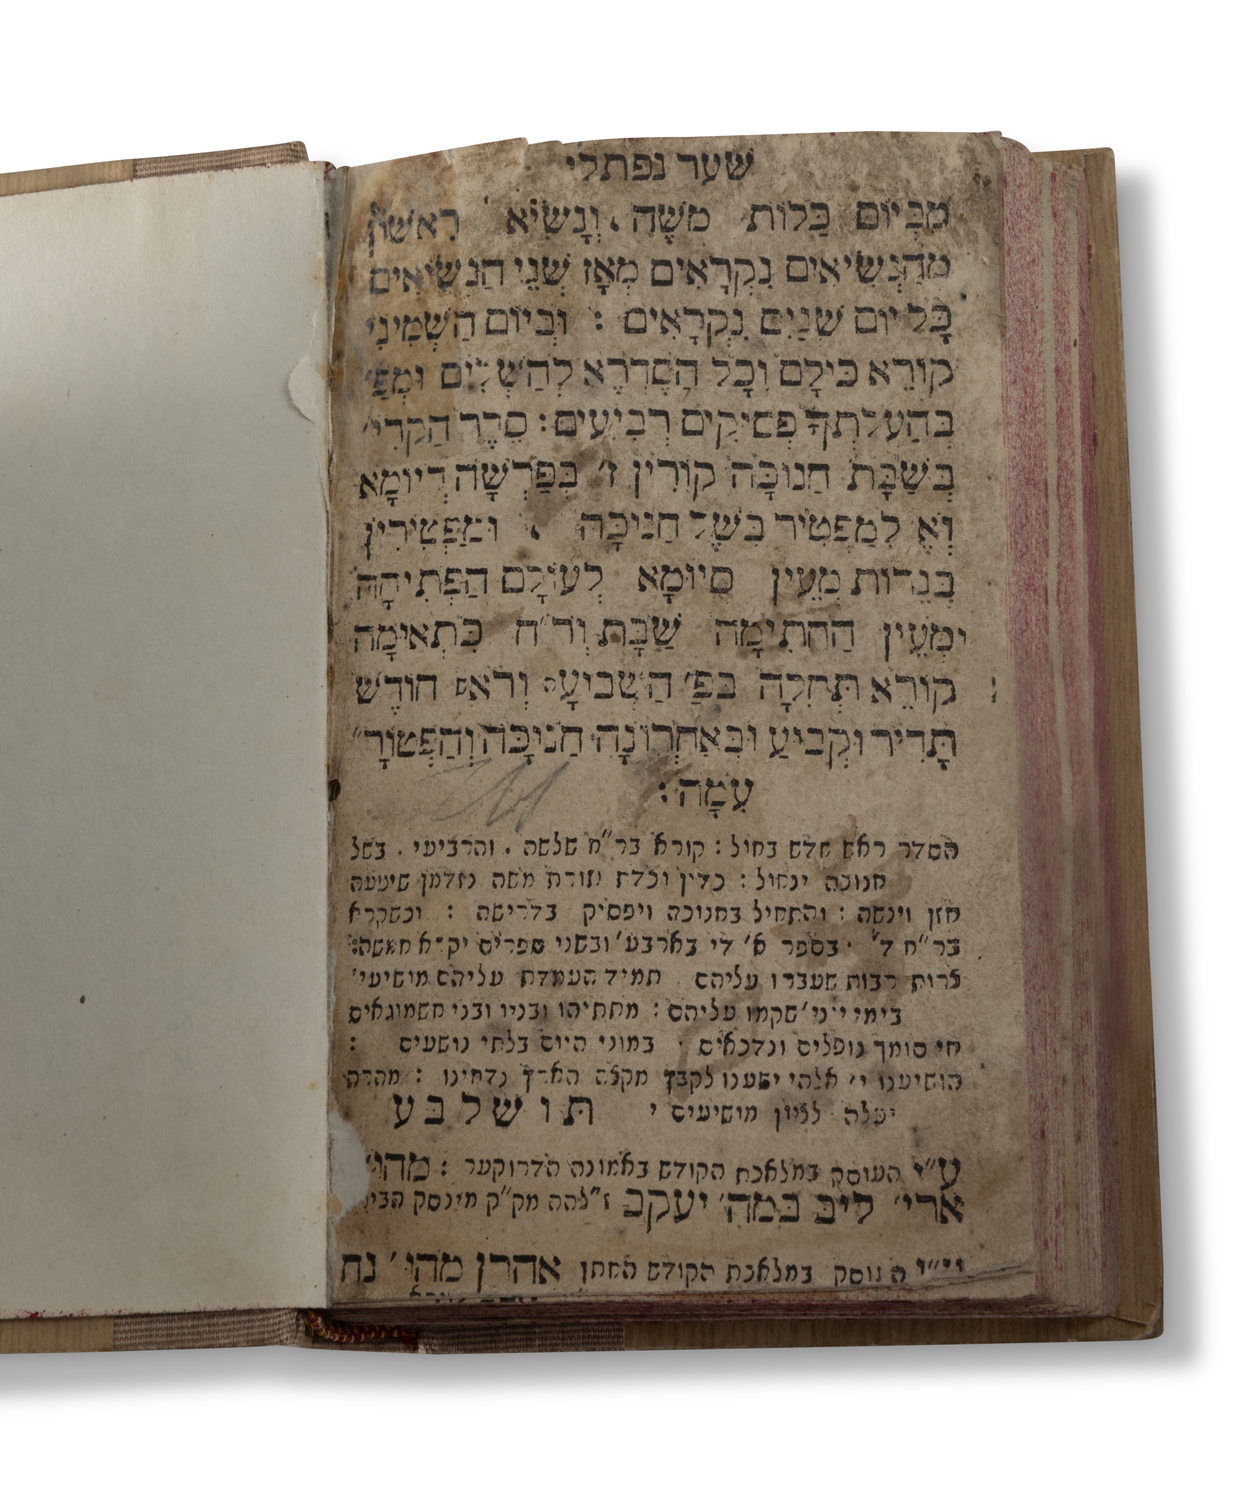 שער נפתלי
מִבְּיוֹם כַּלּוֹת מֹשֶׁה . וְנָשִׂיא רִאשׁוֹן
מֵהַנְשִׂיאִים נִקְרָאִים מֵאָז שְׁנֵי הַנְשִׂיאִים
כָּל יוֹם שְׁנַיִם נִקְרָאִים : וּבְיוֹם הַשְּׁמִינִי
קוֹרֵא כּוּלָם וְכָל הַסֶדְרָא לְהַשְׁלִים וּמִפַ׳
בְּהַעֲלֹתְךָ פְּסִיקִים רְבִיעִים : סֵדֶר הַקְרִי׳
בְּשַׁבָּת חֲנוּכָּה קוֹרִין ז׳ בְּפָרָשָׁה דְיוֹמָא
וְא׳ לְמַפְטִיר בְּשֶׁל חֲנוּכָּה . וּמַפְטִירִין
בְּנֵרוֹת מֵעֵין סִיּוּמָא לְעוֹלָם הַפְּתִיחָה
מֵעֵין הַחֲתִימָה שַׁבָּת וְר״ח כִּתְאִימָה
קוֹרֵא תְּחִלָה בְּפַ׳ הַשְּׁבִיעִי וְרֹאשׁ חוֹדֶשׁ
תָּדִיר וּקְבִיעַ וּבְאַחֲרוֹנָה חֲנוּכָּה וְהַפְטוֹרָ״
עִמָהּ :
הסדר ראש חדש בחול : קורא בר״ח שלשה . והרביעי . בשל
חנוכה ינחול : כדין וכדת תורת משה נאמן שיעשה
חזן וינשה : והתחיל בחנוכה ויפסיק בדרישה : וכשקרא
בר״ח ד׳ . בספר א׳ די בארבע׳ ובשני ספרים יקרא חמשה :
צרות רבות שעברו עליהם . תמיד העמדת עליהם מושיעי׳
בימי יוני׳ שקמו עליהם : מתתיהו ובניו ובני חשמונאים
חי סומך נופלים ונדכאים . במוני היום בלתי נושעים :
הושיענו י׳ אלהי ישענו לקבץ מקצה הארץ נדחינו : מהרה
יעלה לציון מושיעים י תושלבע
ע״י העוסק במלאכת הקודש באמונה הדרוקער : מהו׳
ארי׳ ליב במה׳ יעקב ז״להה מק״ק מינסק
העוסק במלאכת הקודש החתן אהרן מהו׳ נת